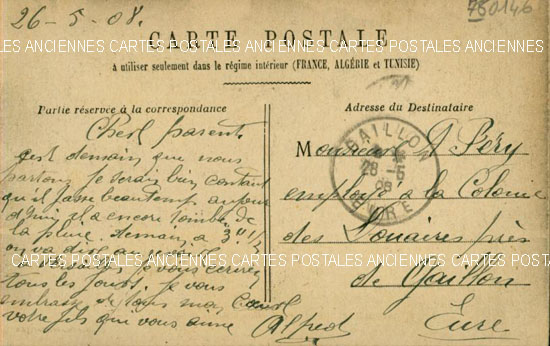 26-5-08.
780146
CARTE POSTALE
CARTES POSTALES ANCIENNES CARTES POSTALES ANCIENNES CARTES POSTALES ANCIENNES
à utiliser seulement dans le régime intérieur (FRANCE, ALGÉRIE et TUNISIE)
Partie réservée à la correspondance
Cherl parent
çest demain que nous
partons je serais bien contant
qu'il fasse beautemp aujour
d'hui il a encore tombé de
la pluie. demain, a 3h 1/2
on va
je vous
tous les jours. je vous
embrasse de tous mon Cœur
votre fils que vous aime
Alfred
Adresse du Destinataire
GAILLON
28-5
08
EURE
Monsieur Péry
employé a la Colonie
des Douaires près
de Gaillon
Eure
CARTES POSTALES ANCIENNES CARTES POSTALES ANCIENNES CARTES POSTALES ANCIENNES